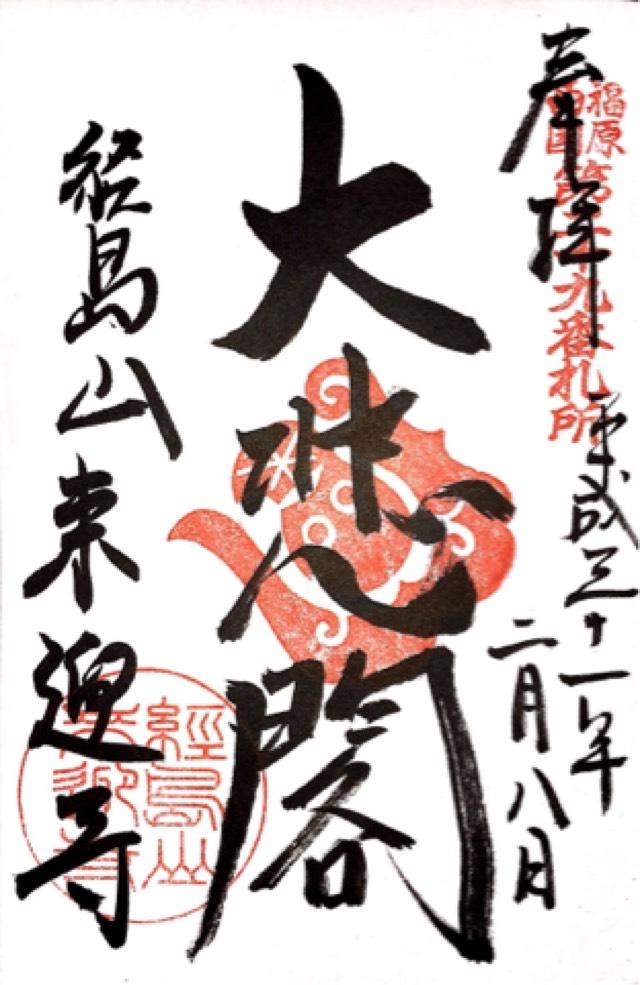 奉拝
福原
西国第十九番札所
平成三十一年
二月八日
大悲閣
経島山来迎寺
經島山
来迎寺